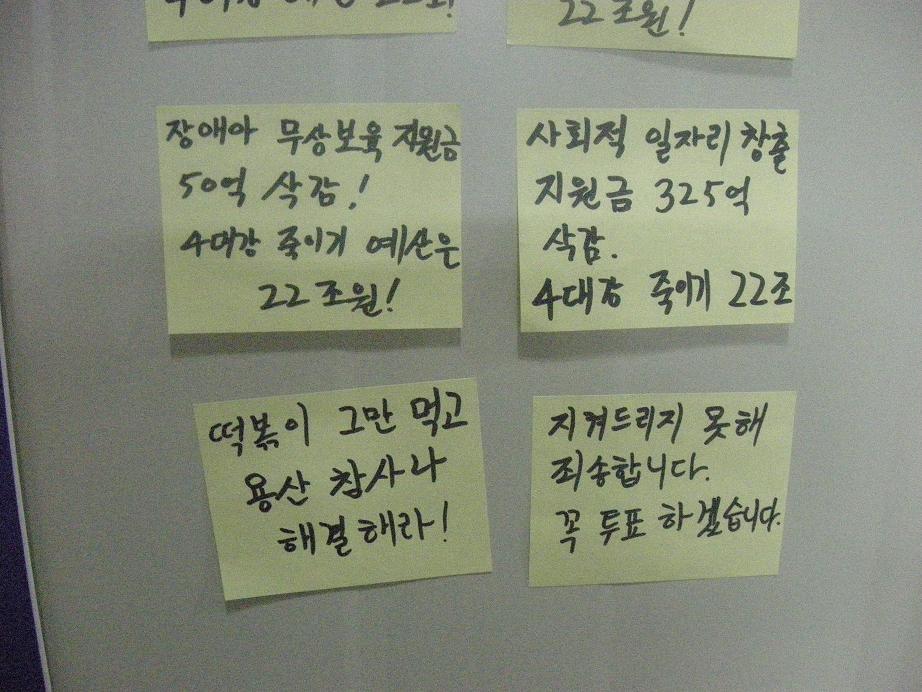 22조원!
장애아 무상보육 지원금
50억 삭감!
4대강 죽이기 예산은
22조원!
사회적 일자리 창출
지원금 325억
삭감.
4대강 죽이기 22조
떡볶이 그만 먹고
용산 참사나
해결해라!
지켜드리지 못해
죄송합니다.
꼭 투표 하겠습니다.